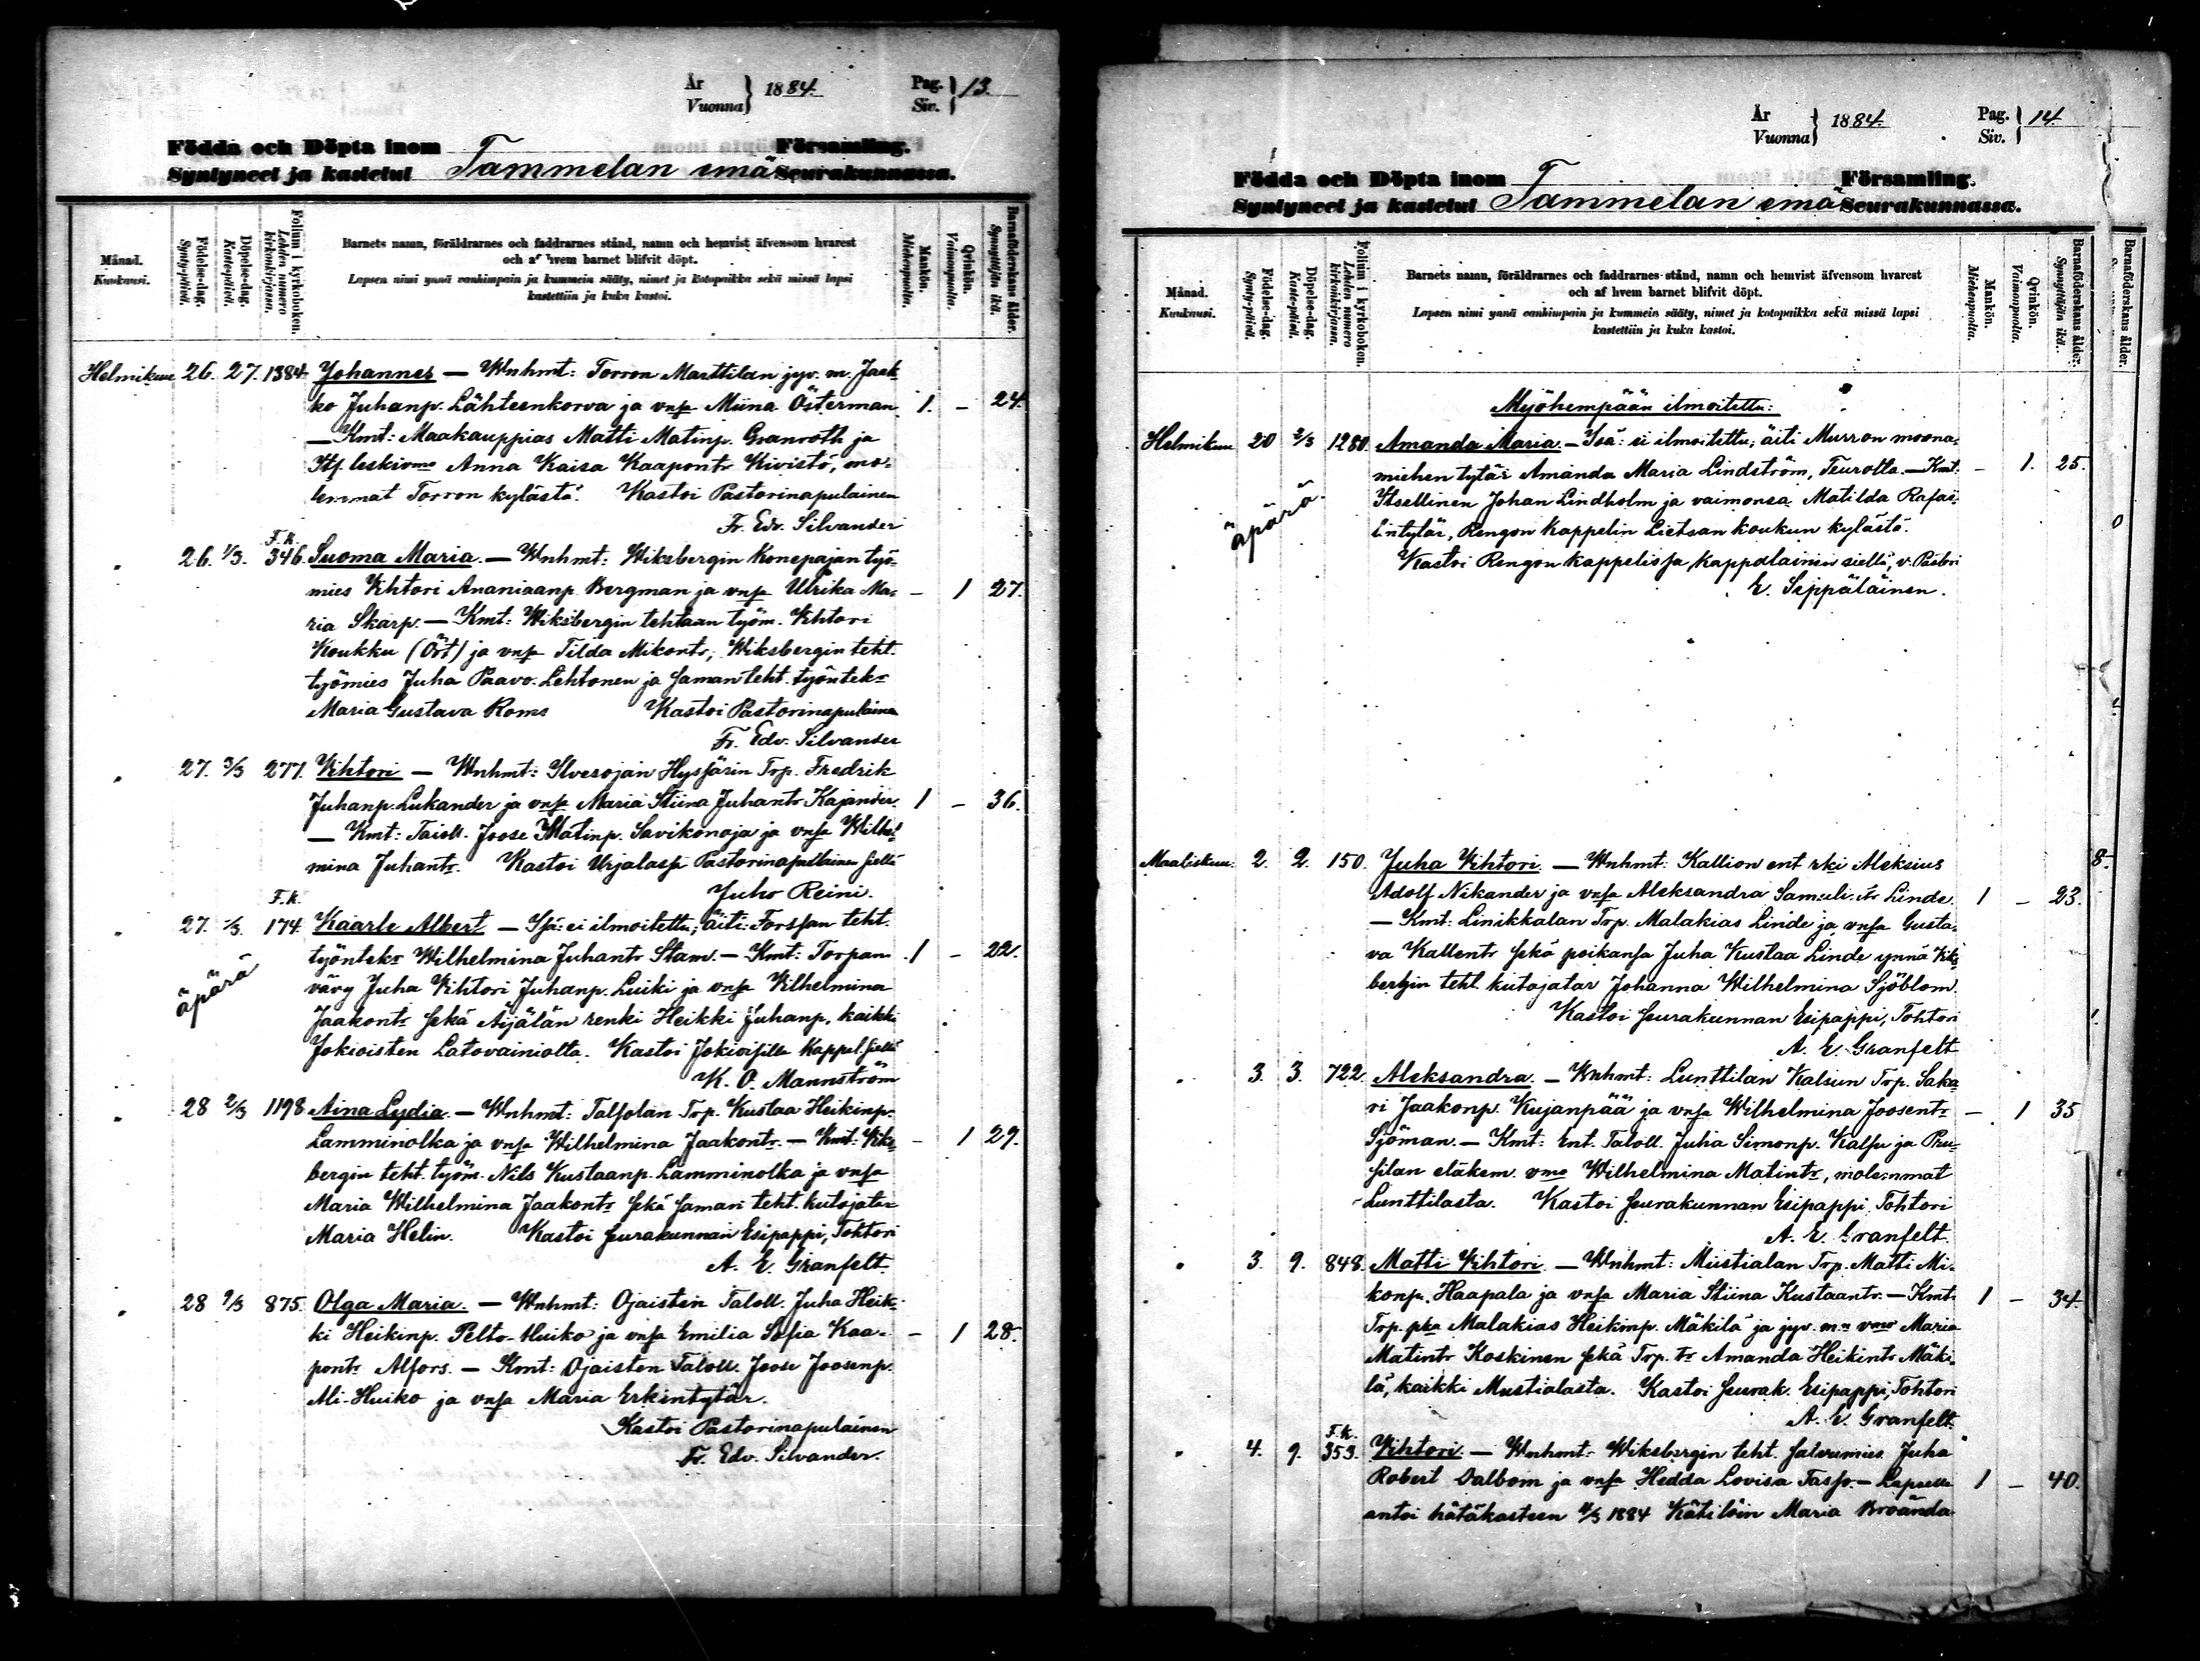 År
Vuonna } 1884. Pag.
Siv. } 13.
Födda och Döpta inom Församling.
Syntyneet ja kastetut Tammelan emä Seurakunnassa.
Månad.
Kuukausi.
Födelse-dag.
Synty-päivä.
Döpelse-dag.
Kaste-päivä.
Folium i kyrkoboken.
Lehden numero kirkonkirjassa.
Barnets namn, föräldrarnes och faddrarnes stånd, namn och hemvist äfvensom hvarest
och af hvem barnet blifvit döpt.
Lapsen nimi ynnä vanhimpain ja kummein sääty, nimet ja kotopaikka sekä missä lapsi
kastettiin ja kuka kastoi.
Mankön.
Miehenpuolta.
Qvinkön.
Vaimonpuolta.
Barnaföderskans ålder.
Synnyttäjän ikä.
Helmikuu 26. 27. 1384. Johannes — Wnhmt: Torron Marttilan jyv. m. Jaak-
ko Juhanp. Lähteenkorva ja vnsa Miina Österman 1. – 24.
— Kmt: Maakauppias Matti Matinp. Granroth ja
Itf. leskivmo Anna Kaisa Kaapontr Kivistö, mo-
lemmat Torron kylästä. Kastoi Pastorinapulainen
Fr. Edv. Silvander
F. k.
" 26. 1/3. 346. Suoma Maria. — Wnhmt: Wiksbergin Konepajan työ-
mies Vihtori Ananiaanp. Bergman ja vnsa Ulrika Ma- – 1 27.
ria Skarp. — Kmt: Wiksbergin tehtaan työm. Vihtori
Koukku (Ört) ja vnsa Tilda Mikontr, Wiksbergin teht.
työmies Juha Paavo Lehtonen ja saman teht. työntekr
Maria Gustava Roms Kastoi Pastorinapulainen
Fr. Edv. Silvander
" 27. 3/3 277. Vihtori — Wnhmt: Ilvesojan Hyssärin Trp. Fredrik
Juhanp. Lukander ja vnsa Maria Stiina Juhantr Kajander. 1 – 36.
— Kmt: Taloll. Joose Matinp. Savikonoja ja vnsa Wilhel-
mina Juhantr. Kastoi Urjalassa Pastorinapulainen siellä
Juho Reini.
F. k.
" 27. /3. 174 Kaarle Albert — Isä: ei ilmoitettu, äiti: Forssan teht.
työntekr Wilhelmina Juhantr Stam. — Kmt: Torpan 1 – 22.
äpärä
vävy Juha Vihtori Juhanp. Luiki ja vnsa Vilhelmina
Jaakontr sekä Äijälän renki Heikki Juhanp. kaikki
Jokioisten Latovainiolta. Kastoi Jokioisilla Kappel. siellä
K. O. Mannström
" 28 2/3 1198 Aina Lydia. — Wnhmt: Talsolan Trp. Kustaa Heikinp.
Lamminolka ja vnsa Wilhelmina Jaakontr. — Kmt: Viks- – 1 29.
bergin teht. työm. Nils Kustaanp. Lamminolka ja vnsa
Maria Wilhelmina Jaakontr sekä saman teht. kutojatar
Maria Helin. Kastoi seurakunnan Esipappi, Tohtori
A. E. Granfelt.
" 28 9/3 875. Olga Maria. — Wnhmt: Ojaisten Taloll. Juha Heik-
ki Heikinp. Pelto-Huiko ja vnsa Emilia Sofia Kaa- – 1 28.
pontr Alfors. — Kmt: Ojaisten Taloll. Joose Joosenp.
Ali-Huiko ja vnsa Maria Erkintytär.
Kastoi Pastorinapulainen
Fr. Edv. Silvander.
År
Vuonna } 1884. Pag.
Siv. } 14.
Födda och Döpta inom Församling.
Syntyneet ja kastetut Tammelan emä Seurakunnassa.
Månad.
Kuukausi.
Födelse-dag.
Synty-päivä.
Döpelse-dag.
Kaste-päivä.
Folium i kyrkoboken.
Lehden numero kirkonkirjassa.
Barnets namn, föräldrarnes och faddrarnes stånd, namn och hemvist äfvensom hvarest
och af hvem barnet blifvit döpt.
Lapsen nimi ynnä vanhimpain ja kummein sääty, nimet ja kotopaikka sekä missä lapsi
kastettiin ja kuka kastoi.
Mankön.
Miehenpuolta.
Qvinkön.
Vaimonpuolta.
Barnaföderskans ålder.
Synnyttäjän ikä.
Barnaföderskans ålder.
Myöhempään ilmoitettu:
Helmikuu 20 2/3 1280. Amanda Maria. — Isä: ei ilmoitettu; äiti Murron moona-
miehen tytär Amanda Maria Lindström, Teurolta. — Kmt: – 1. 25.
äpärä
Itsellinen Johan Lindholm ja vaimonsa Matilda Rafae-
lintytär, Rengon Kappelin Lietsan koukun kylästä.
Kastoi Rengon kappelissa kappalainen siellä, v. Pastori
E. Seppäläinen.
Maaliskuu. 2. 2. 150. Juha Vihtori. — Wnhmt: Kallion ent rki Aleksius
Adolf Nikander ja vnsa Aleksandra Samuelintr Linde. 1 – 23.
— Kmt: Linikkalan Trp. Malakias Linde ja vnsa Gusta-
va Kallentr sekä poikansa Juha Kustaa Linde ynnä Viks-
bergin teht. kutojatar Johanna Wilhelmina Sjöblom.
Kastoi seurakunnan Esipappi, Tohtori
A. E. Granfelt
" 3. 3. 722. Aleksandra. — Wnhmt: Lunttilan Kalsun Trp. Saka-
ri Jaakonp. Kujanpää ja vnsa Wilhelmina Joosentr – 1 35
Sjöman. — Kmt: Ent. Taloll. Juha Simonp. Kalsu ja Pru-
silan eläkem. vmo Wilhelmina Matintr, molemmat
Lunttilasta. Kastoi seurakunnan Esipappi Tohtori
A. E. Granfelt.
" 3. 9. 848. Matti Vihtori — Wnhmt: Mustialan Trp. Matti Mi-
konp. Haapala ja vnsa Maria Stiina Kustaantr. — Kmt: 1 – 34.
Trp. pka Malakias Heikinp. Mäkilä ja jyv. mn vmo Maria
Matintr Koskinen sekä Trp. tr Amanda Heikintr Mäki-
lä, kaikki Mustialasta. Kastoi seurak. Esipappi, Tohtori
A. E. Granfelt.
F. k.
" 4. 9. 353. Vihtori. — Wnhmt: Wiksbergin teht. saterumies Juha
Robert Dalbom ja vnsa Hedda Lovisa Tasso. — Lapselle 1 – 40.
antoi hätäkasteen 4/3 1884 Kätilöin Maria Broända